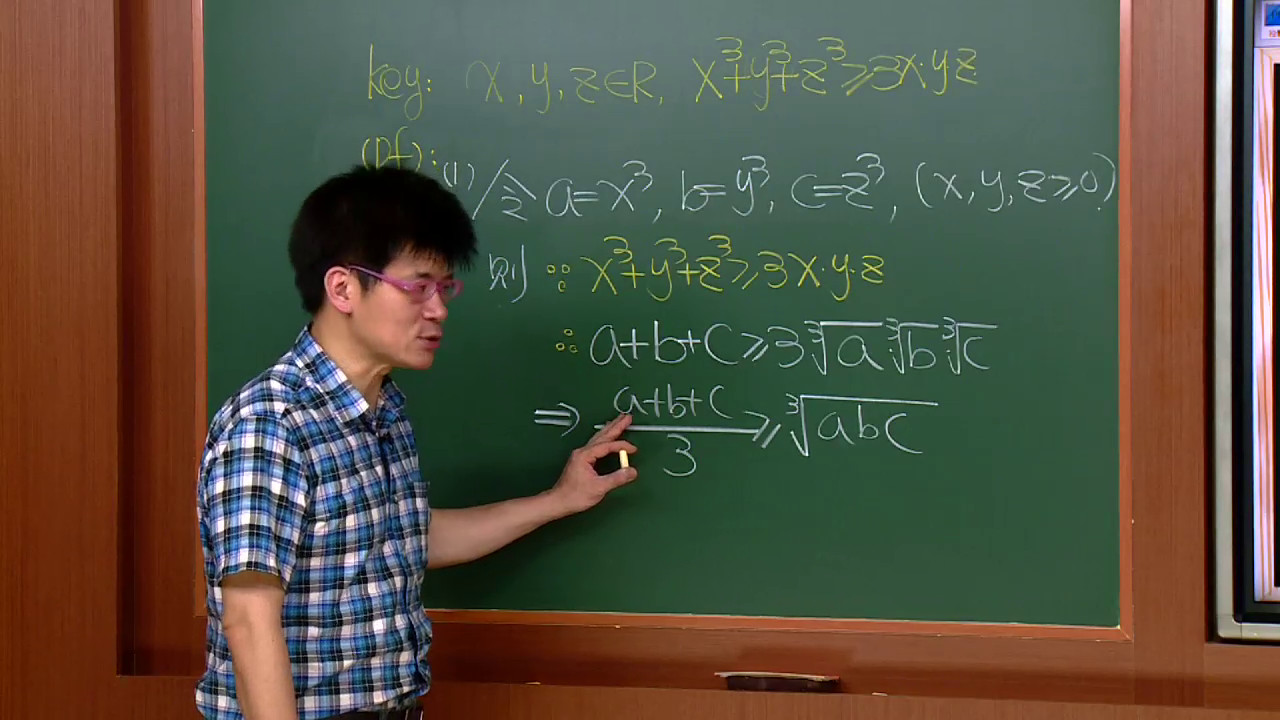 key: x, y, z∈R, x³+y³+z³≥3x·y·z
(pf):
(1) 令 a=x³, b=y³, c=z³, (x, y, z≥0)
则 ∵ x³+y³+z³≥3x·y·z
∴ a+b+c≥3∛a·∛b·∛c
⇒ (a+b+c)/3 ≥ ∛abc